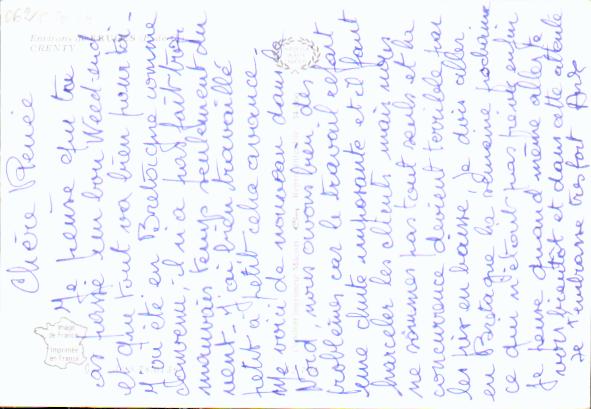 Chère Renée
Je pense que tu
as passé un bon Weed-end
et que tout va bien pour toi-
J'ai été en Bretagne comme
convenu, il n'a pas fait très
mauvais temps seulement du
vent- J'ai bien travaillé
petit à petit cela avance
Me voici de nouveau dans le
Nord, nous avons bien des
problèmes car le travail est art
une chute importante et il faut
harceler les clients mais nous
ne sommes pas tout seuls et la
concurrence devient terrible par
les prix en baisse, Je dois aller
en Bretagne la semaine prochaine
ce qui n'était pas prévu enfin
Je pense quand même aller te
voir bientôt et dans cette attente
Je t'embrasse très fort
Environs
CRENEY
Image
de France
Imprimée
en France